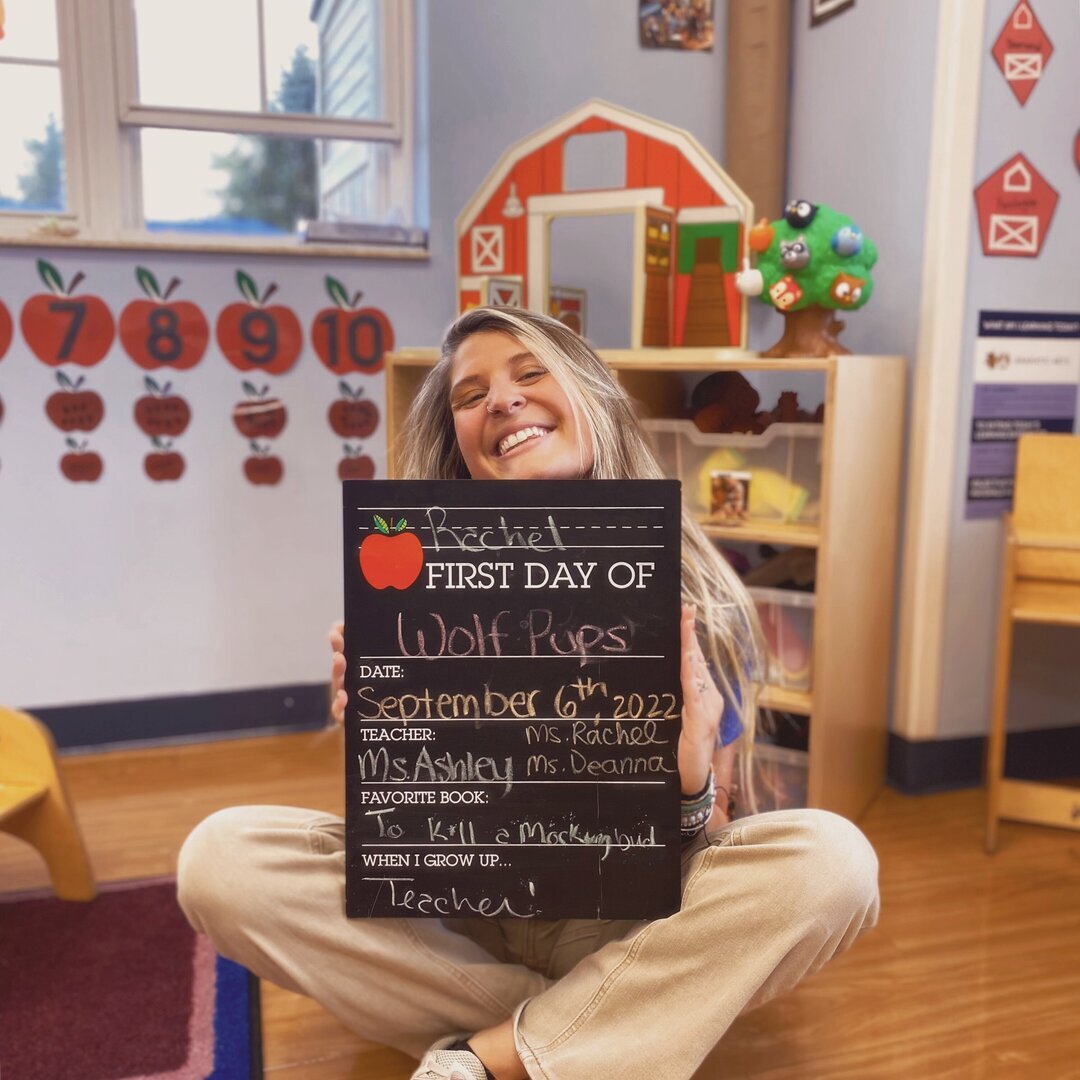 7 8 9 10
Rachel
FIRST DAY OF
Wolf Pups
DATE:
September 6th, 2022
TEACHER: Ms. Rachel
Ms. Ashley Ms. Deanna
FAVORITE BOOK:
To Kill a Mockingbird
WHEN I GROW UP...
Teacher!